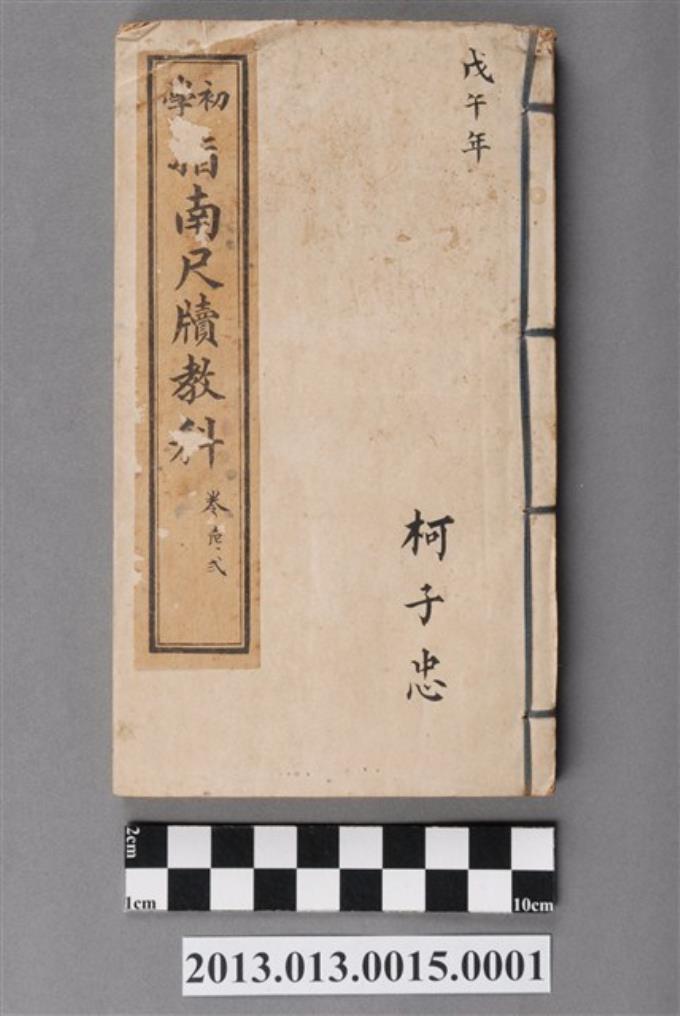 戊午年
柯子忠
初學
指南尺牘教科
卷壱、弍
2cm
1cm
10cm
2013.013.0015.0001